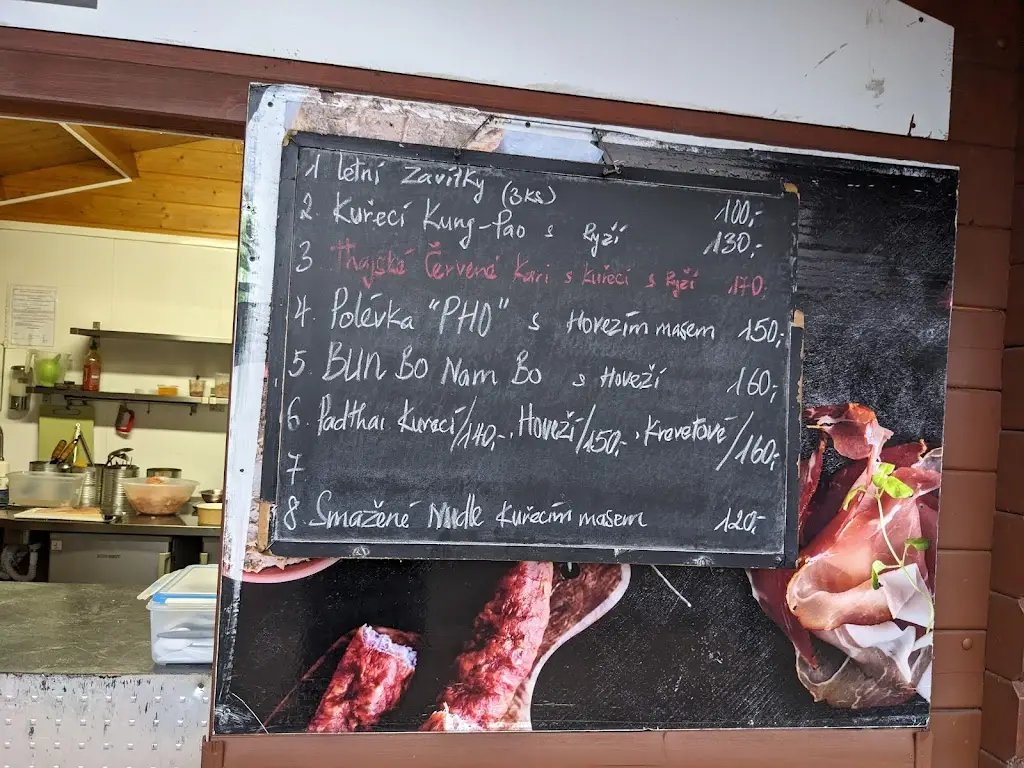 1 Letní Zavitky (3ks) 100,-
2. Kuřecí Kung-Pao s Ryží 130,-
3 Thajské Červené Kari s kuřecí s Ryží 170,-
4. Polévka "PHO" s Hovezím masem 150,-
5. BUN Bo Nam Bo s Hoveží 160,-
6. Padthai Kurecí/140,-. Hoveží/150,-. Krevetové/160,-
7
8. Smažené Nudle Kuřecím masem 120,-